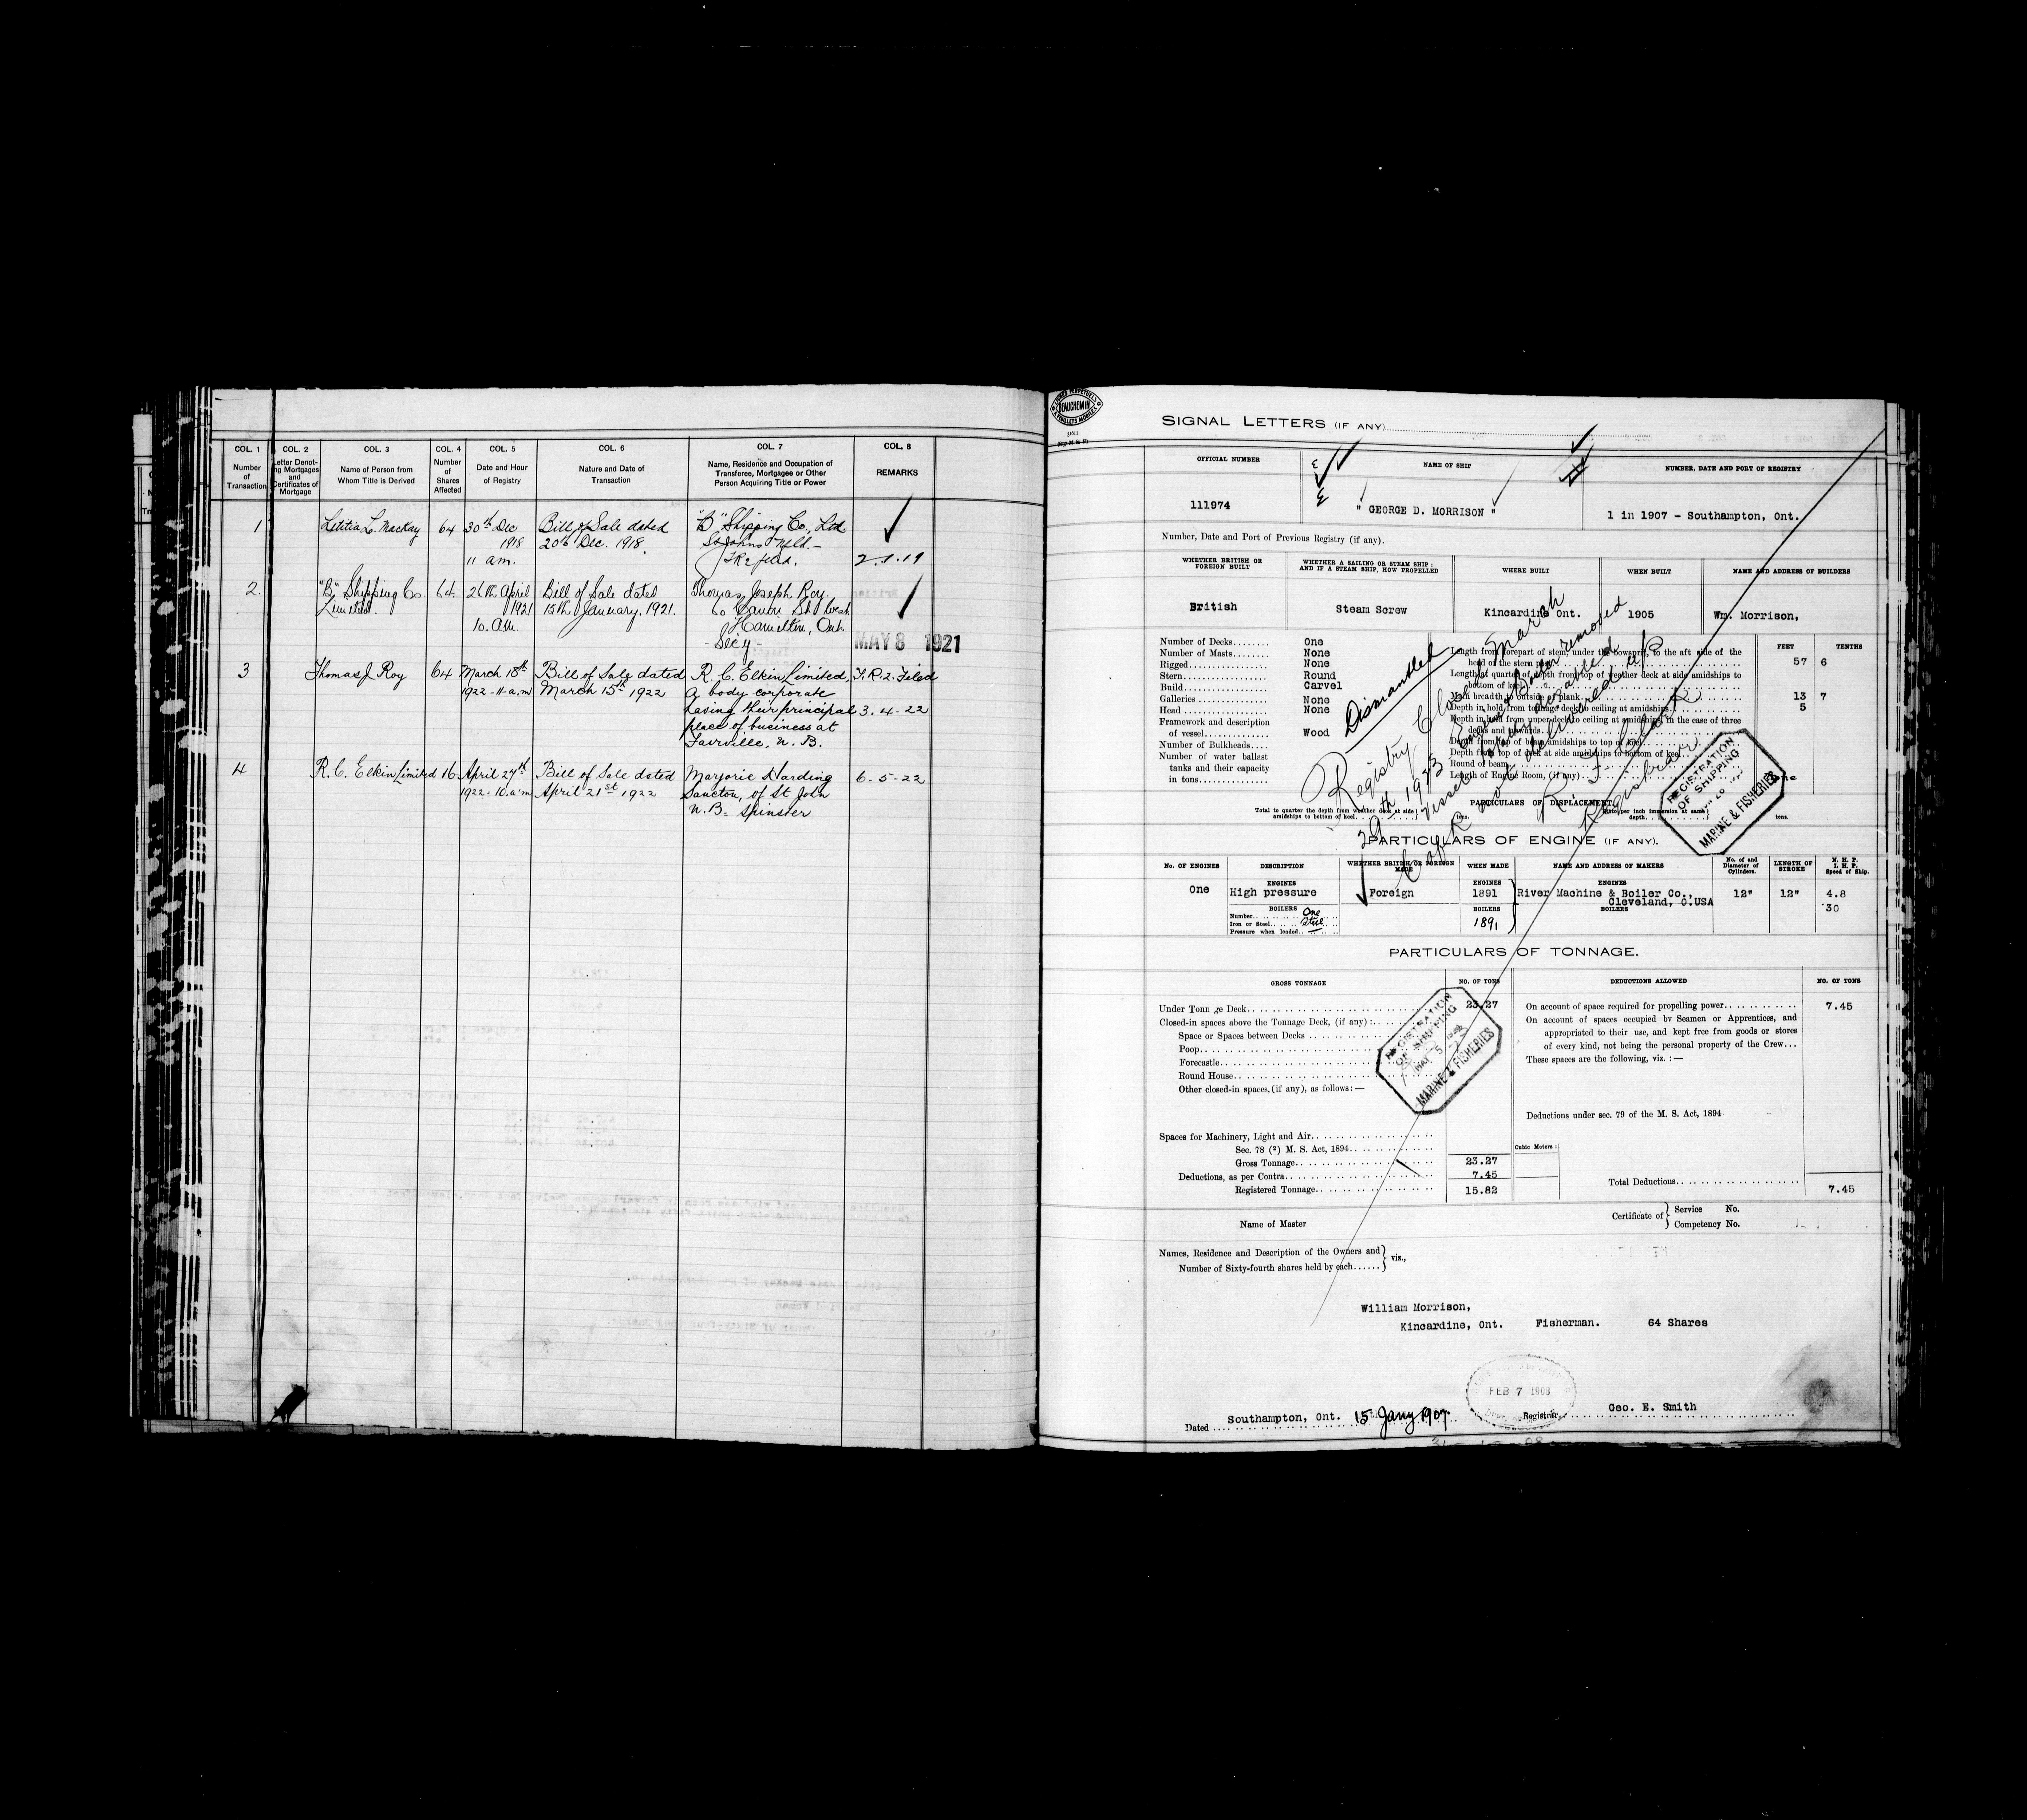 COL. 1 COL. 2 COL. 3 COL. 4 COL. 5 COL. 6 COL. 7 COL. 8
Number of Transaction
Letter Denoting Mortgages and Certificates of Mortgage
Name of Person from Whom Title is Derived
Number of Shares Affected
Date and Hour of Registry
Nature and Date of Transaction
Name, Residence and Occupation of Transferee, Mortgagee or Other Person Acquiring Title or Power
REMARKS
1 Letitia L. Mackay 64 30th Dec Bill of Sale dated "B" Shipping Co., Ltd.
1918 20th Dec. 1918. St Johns Nfld.—
11 am. TR2 filed. 2.1.19
2 "B" Shipping Co 64 26th April Bill of Sale dated Thomas Joseph Roy.
Limited. 1921 15th January, 1921. St West
10. am. Hamilton, Ont.
Secy - MAY 8 1921
3 Thomas J Roy 64 March 18th Bill of Sale dated R. C. Elkin Limited, T.R.2. Filed
1922 - 11-a.m March 15th 1922 a body corporate
having their principal 3. 4-22
place of business at
Fairville, N. B.
4 R. C. Elkin Limited 16 April 27th Bill of Sale dated Marjorie Harding 6-5-22
1922 - 10. a.m April 21st 1922 Sancton, of St John
N.B. Spinster
BEAUCHEMIN
SIGNAL LETTERS (IF ANY)
OFFICIAL NUMBER NAME OF SHIP NUMBER, DATE AND PORT OF REGISTRY
111974 " GEORGE D. MORRISON " 1 in 1907 - Southampton, Ont.
Number, Date and Port of Previous Registry (if any).
WHETHER BRITISH OR FOREIGN BUILT
WHETHER A SAILING OR STEAM SHIP: AND IF A STEAM SHIP, HOW PROPELLED
WHERE BUILT WHEN BUILT NAME AND ADDRESS OF BUILDERS
British Steam Screw Kincardine Ont. 1905 Wm. Morrison,
FEET TENTHS
Number of Decks One
Number of Masts None
Rigged None
Stern Round
Build Carvel
Galleries None
Head None
Framework and description
of vessel Wood
Number of Bulkheads
Number of water ballast
tanks and their capacity
in tons
Length from forepart of stem, under the bowsprit, to the aft side of the
head of the stern post 57 6
Length at quarter of depth from top of weather deck at side amidships to
bottom of keel
Main breadth to outside of plank 13 7
Depth in hold from tonnage deck to ceiling at amidships 5
Depth in hold from upper deck to ceiling at amidships, in the case of three
decks and upwards
Depth from top of beam amidships to top of keel
Depth from top of deck at side amidships to bottom of keel
Round of beam
Length of Engine Room, (if any)
Dismantled
Registry Closed March
29th 1923 Engine & Boiler removed
Vessel
not delivered up
Registrar
REGISTRATION OF SHIPPING
MARINE & FISHERIES
PARTICULARS OF DISPLACEMENT.
Total to quarter the depth from weather deck at side
amidships to bottom of keel tons.
Ditto per inch immersion at same
depth tons.
PARTICULARS OF ENGINE (IF ANY).
No. OF ENGINES DESCRIPTION WHETHER BRITISH OR FOREIGN MADE WHEN MADE NAME AND ADDRESS OF MAKERS No. of and Diameter of Cylinders. LENGTH OF STROKE N. H. P. I. H. P. Speed of Ship.
ENGINES ENGINES ENGINES
One High pressure Foreign 1891 River Machine & Boiler Co., 12" 12" 4.8
Cleveland, O.USA 30
BOILERS BOILERS BOILERS
Number One
Iron or Steel Steel 1891
Pressure when loaded
PARTICULARS OF TONNAGE.
GROSS TONNAGE NO. OF TONS DEDUCTIONS ALLOWED NO. OF TONS
Under Tonnage Deck 23.27
Closed-in spaces above the Tonnage Deck, (if any):
Space or Spaces between Decks
Poop
Forecastle
Round House
Other closed-in spaces, (if any), as follows:—
On account of space required for propelling power 7.45
On account of spaces occupied by Seamen or Apprentices, and
appropriated to their use, and kept free from goods or stores
of every kind, not being the personal property of the Crew
These spaces are the following, viz. :—
REGISTRATION OF SHIPPING
MARINE & FISHERIES
Deductions under sec. 79 of the M. S. Act, 1894
Spaces for Machinery, Light and Air
Sec. 78 (2) M. S. Act, 1894
Cubic Meters:
Gross Tonnage 23.27
Deductions, as per Contra 7.45
Registered Tonnage 15.82
Total Deductions 7.45
Name of Master
Certificate of Service No.
Competency No.
Names, Residence and Description of the Owners and
Number of Sixty-fourth shares held by each viz.,
William Morrison,
Kincardine, Ont. Fisherman. 64 Shares
FEB 7
Dated Southampton, Ont. 15 Jany 1907. Registrar Geo. E. Smith